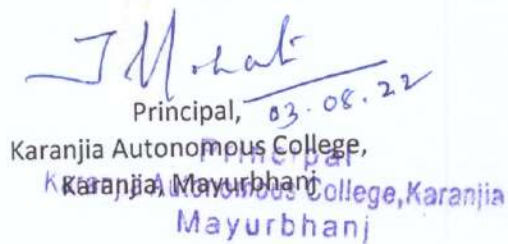 Principal,
03.08.22
Karanjia Autonomous College,
Karanjia, Mayurbhanj
Principal
Karanjia Autonomous College, Karanjia
Mayurbhanj